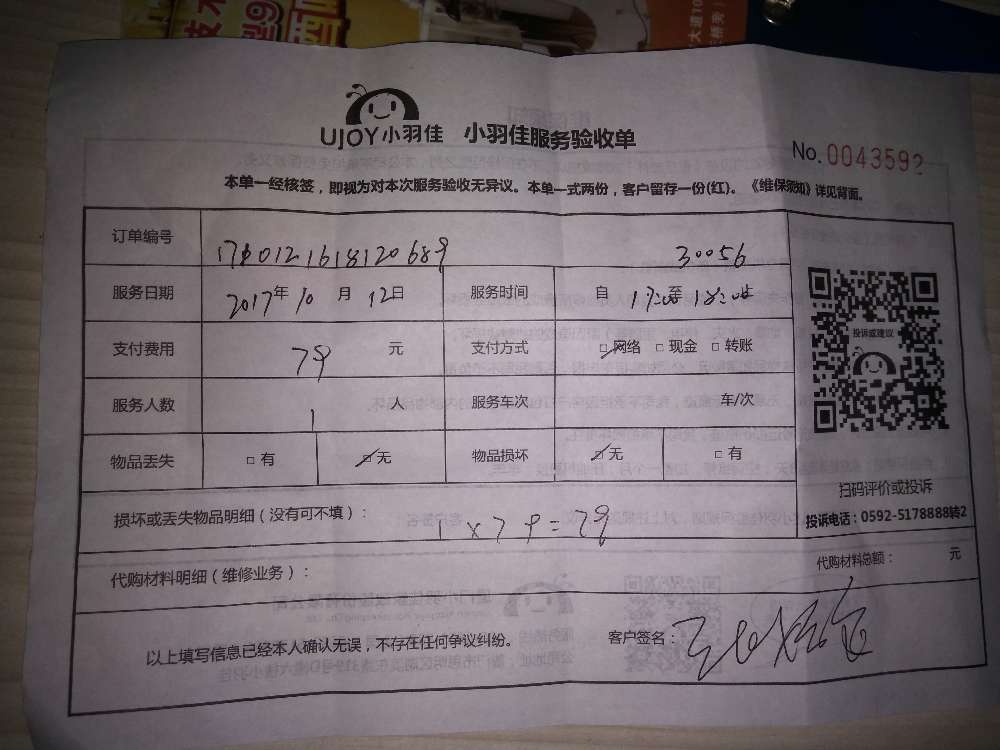 UJOY小羽佳 小羽佳服务验收单
No.0043592
本单一经核签，即视为对本次服务验收无异议。本单一式两份，客户留存一份(红)。《维保须知》详见背面。
订单编号 30056
服务日期 2017年10月12日 服务时间 自17:00至18:00止
支付费用 79 元 支付方式 □网络 □现金 □转账
服务人数 1 人 服务车次 车/次
物品丢失 □有 □无 物品损坏 □无 □有
投诉或建议
扫码评价或投诉
投诉电话：0592-5178888转2
损坏或丢失物品明细（没有可不填）： 1×79=79
代购材料明细（维修业务）： 代购材料总额： 元
以上填写信息已经本人确认无误，不存在任何争议纠纷。 客户签名：